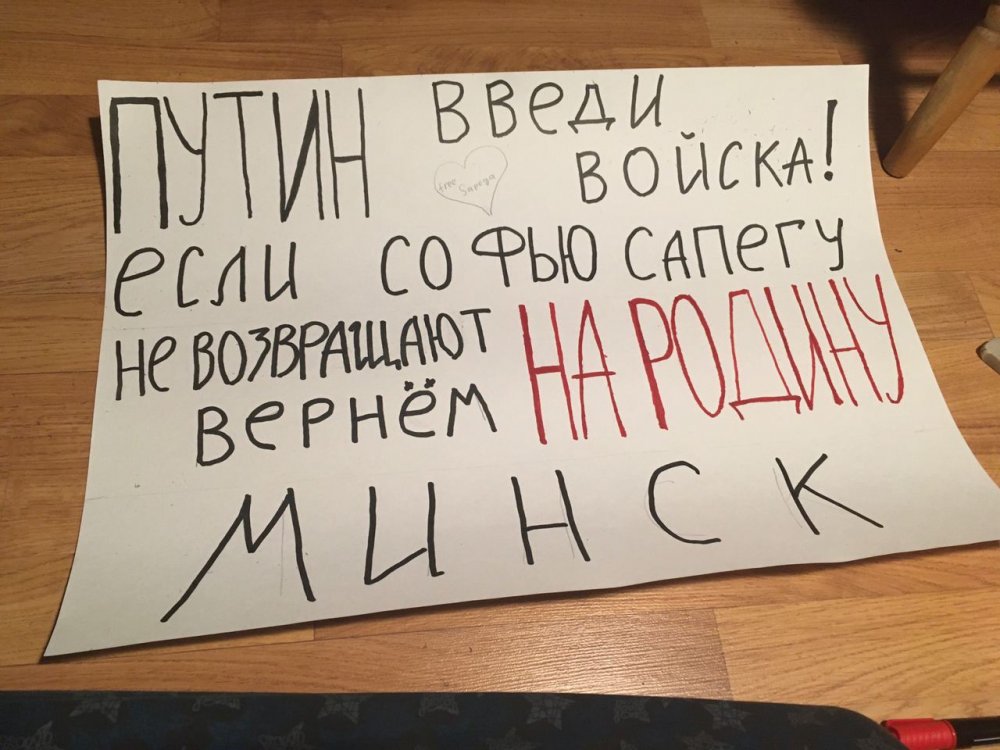 ПУТИН введи
войска!
free
Sapega
если софью сапегу
не возвращают
вернём НА РОДИНУ
МИНСК